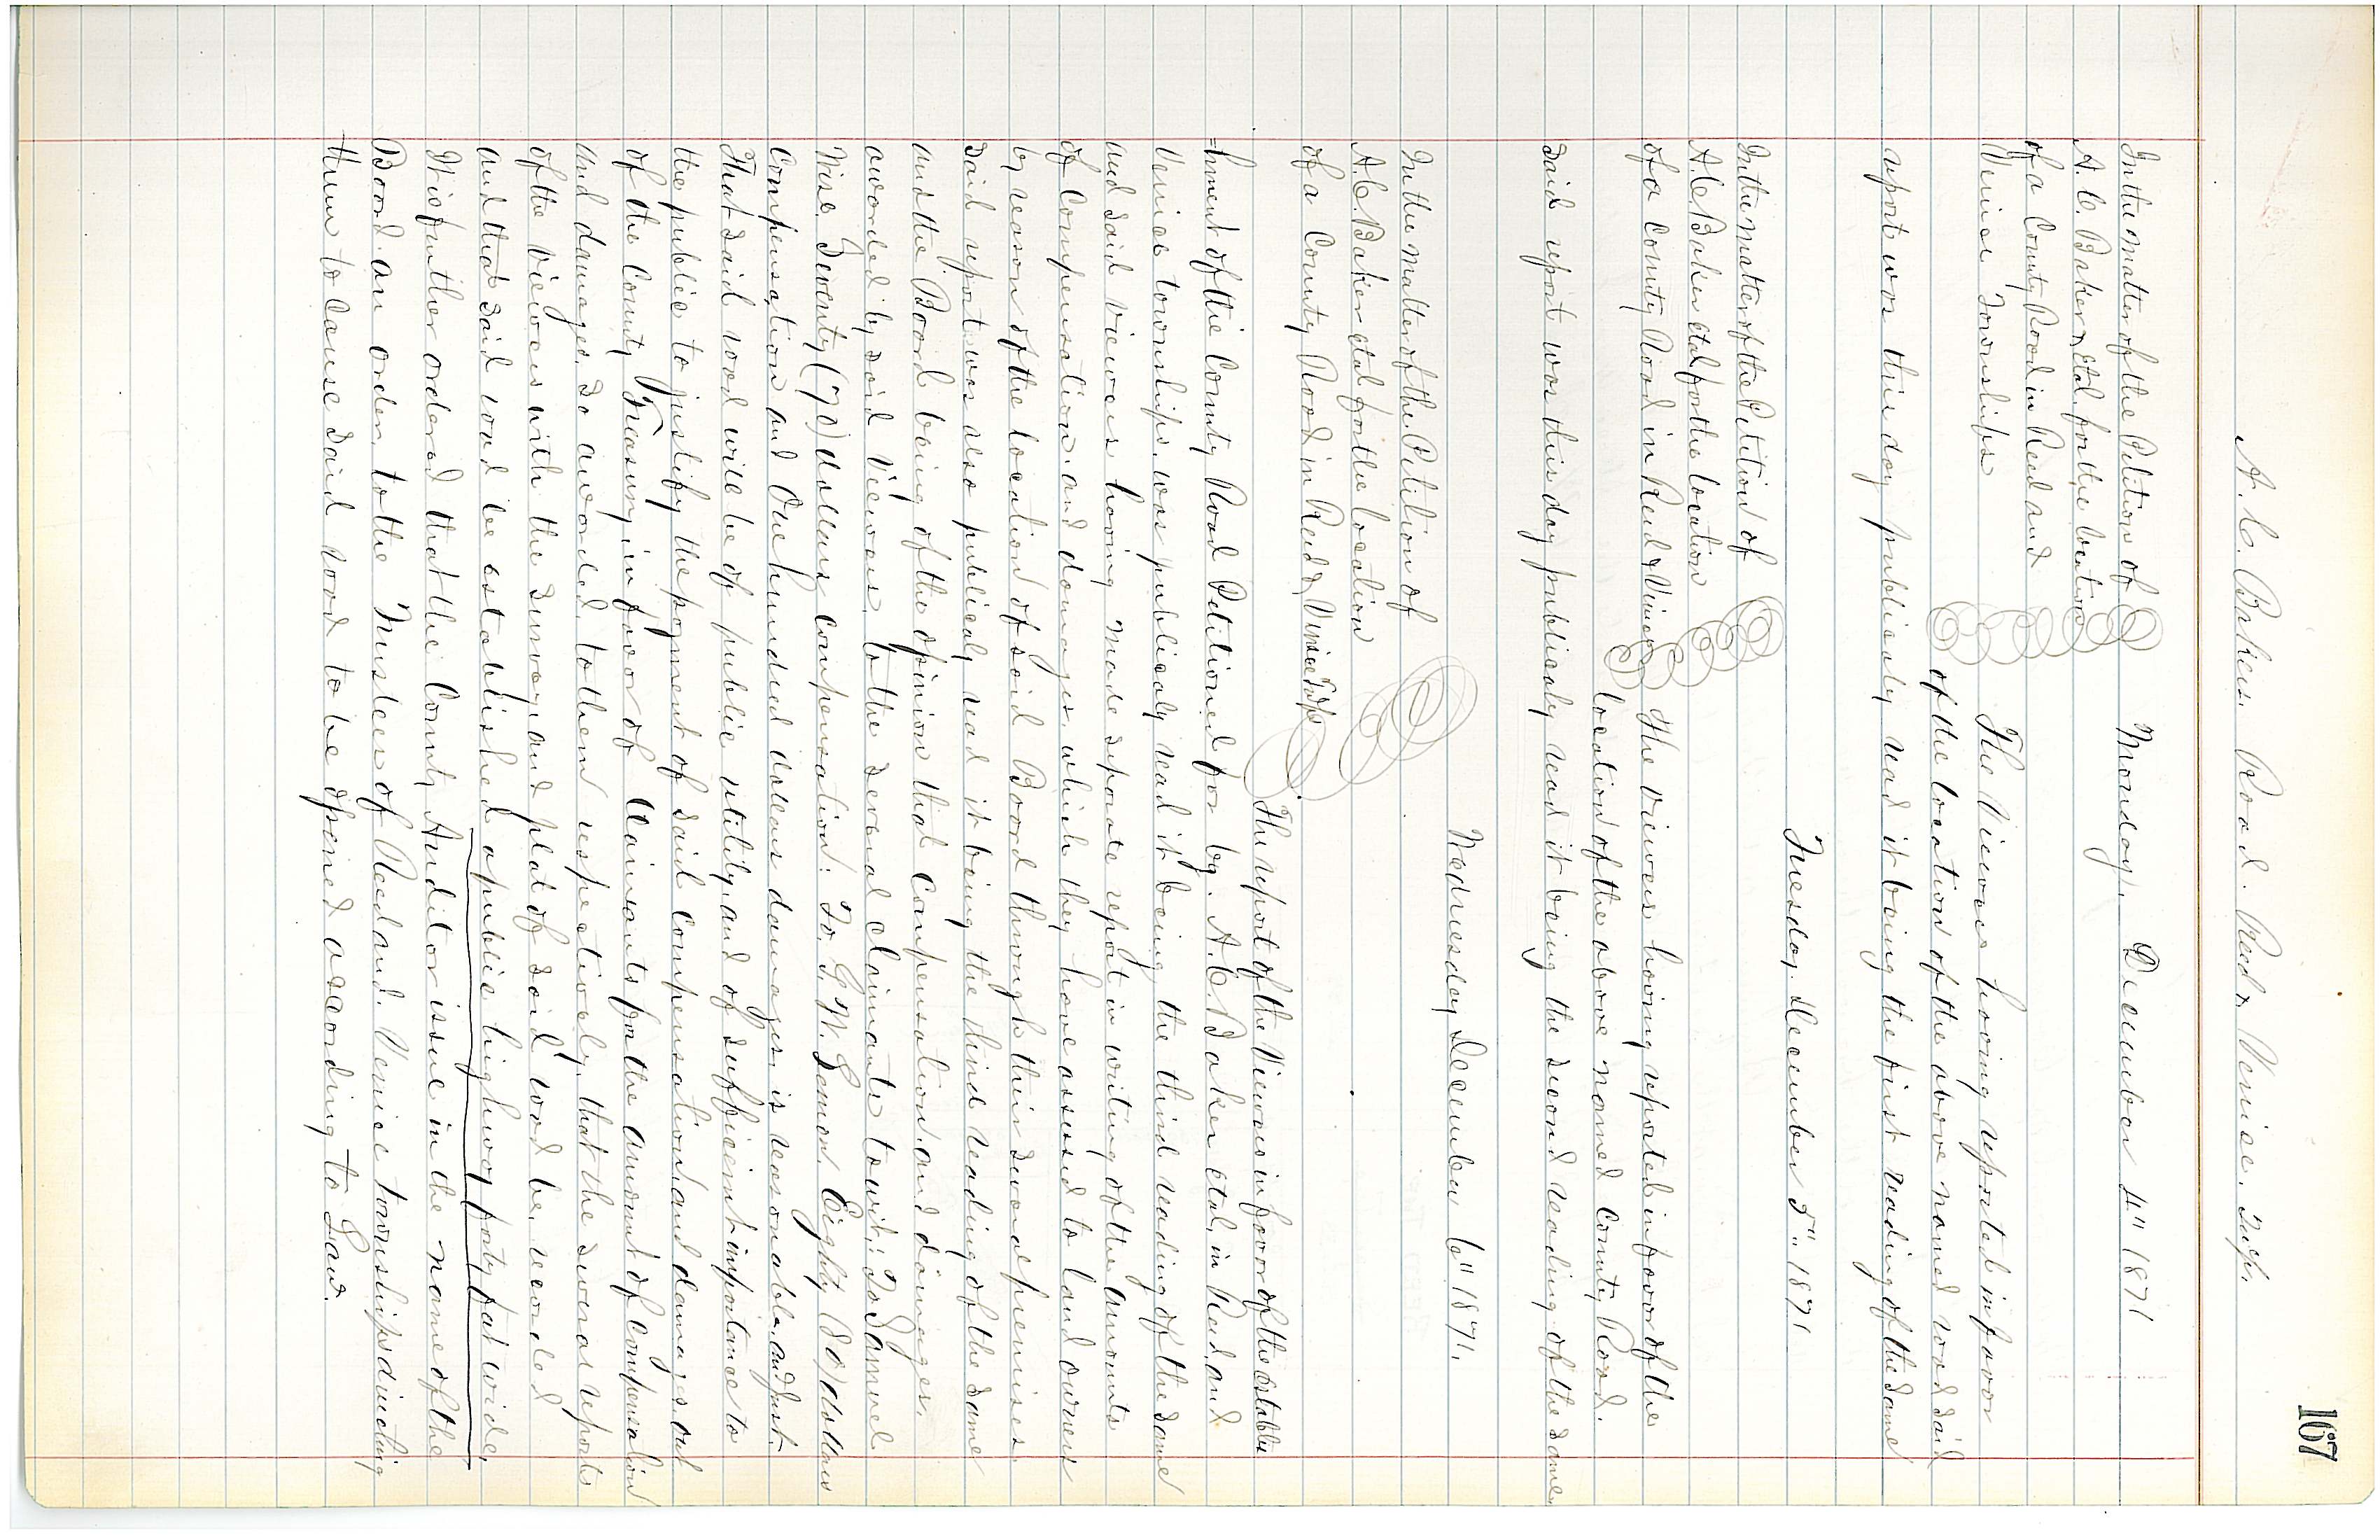 167
A. C. Bakers Road. Reed & Venice. Twps.
In the matter of the Petition of
A. C. Baker et al. for the location
of a County Road in Reed and
Venice Townships
Monday. December 4" 1871
The Viewers having reported in favor
of the location of the above named road said
report was this day publicaly read it being the first reading of the same
Tuesday. December 5". 1871
In the matter of the Petition of
A. C. Baker et al for the location
of a County Road in Reed & Venice
The viewers having reported in favor of the
location of the above named County Road.
said report was this day publicaly read it being the second reading of the same.
Wednesday December 6" 1871.
In the matter of the Petition of
A. C. Baker et al for the location
of a County Road in Reed & Venice Twps
The report of the Viewers in favor of the establis
hment of the County Road Petitioned for by. A. C. Baker et al. in Reed and
Venice townships. was publicaly read it being the third reading of the same
and said viewers having made seperate report in writing of the amounts
of Compensation and damages which they have assessed to land owners
by reason of the location of said Board through their several premises.
said report was also publicaly read it being the third reading of the same
and the Board being of the opinion that Compensation and damages.
awarded by said Viewers. to the several claimants towit: To Samuel
Wise. Seventy (70) dollars compensation: To. G. W. Lemon. Eighty (80) dollars
Compensation and One hundred dollars damages is reasonable and just.
That said road will be of public utility. and of sufficient importance to
the public to justify the payment of said compensation and damages. out
of the County Treasury in favor of Claimants for the amount of compensation
and damages. So awarded to them respectively. that the several reports
of the Viewers with the survey. and plat of said road be. recorded
and that said road be established a public highway forty feet wide.
It is further ordered that the County Auditor issue in the name of the
Board. an order to the Trustees of Reed and. Venice townships directing
them to cause said road to be opened according to Law.